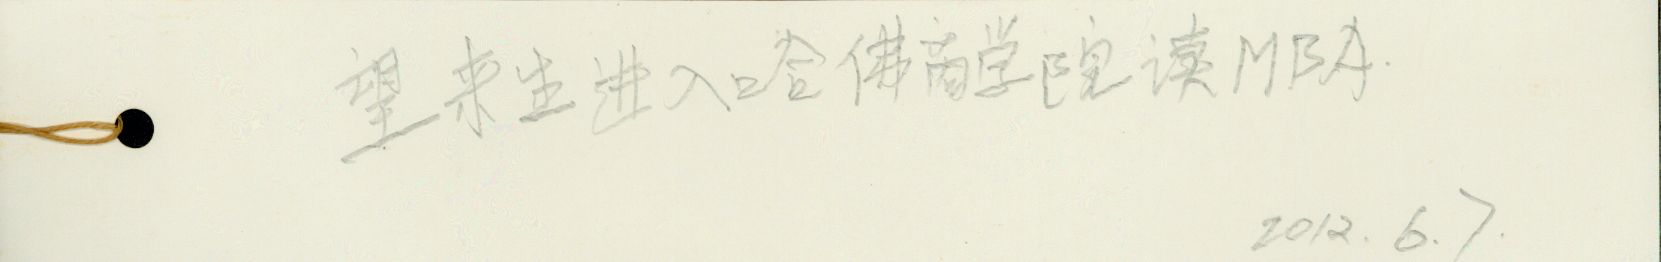 望来生进入哈佛商学院读MBA.
2012.6.7.